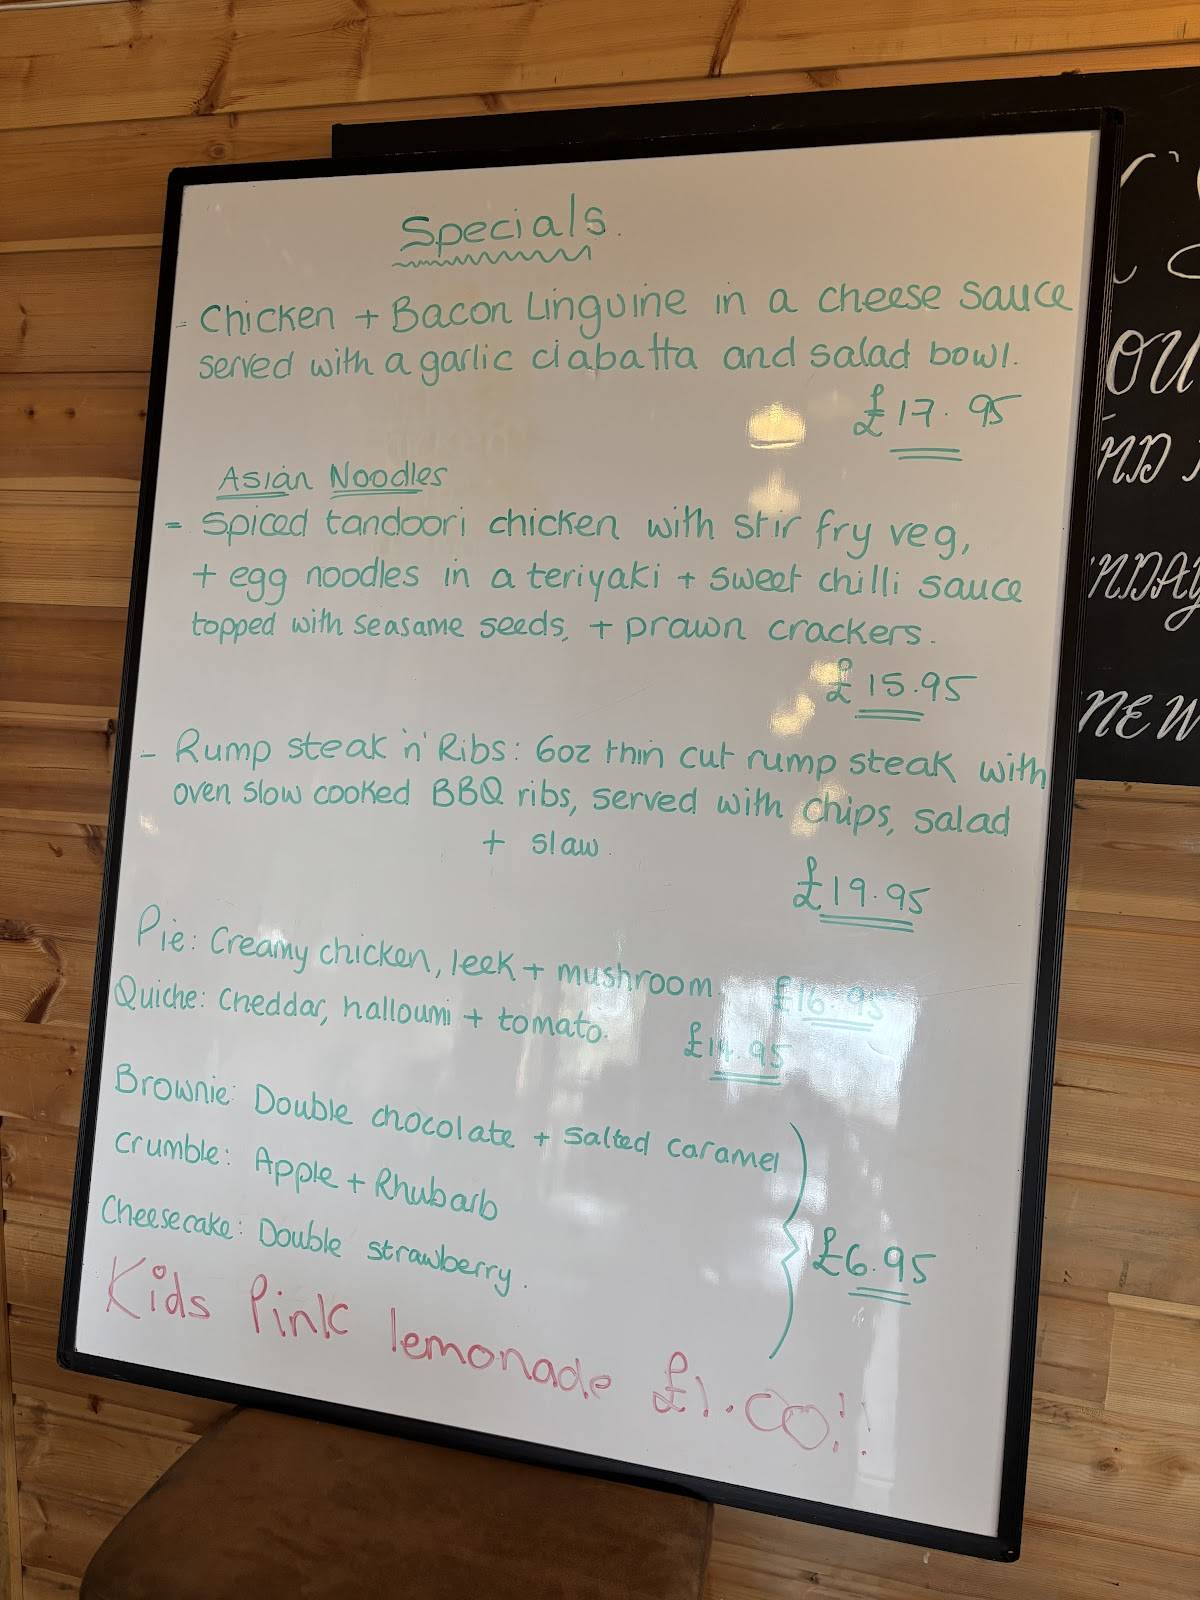 Specials.
- Chicken + Bacon Linguine in a cheese sauce
served with a garlic ciabatta and salad bowl.
£17.95
Asian Noodles
- Spiced tandoori chicken with stir fry veg,
+ egg noodles in a teriyaki + sweet chilli sauce
topped with seasame seeds, + prawn crackers.
£15.95
- Rump steak 'n' Ribs: 6oz thin cut rump steak with
oven slow cooked BBQ ribs, served with chips, salad
+ slaw.
£19.95
Pie: Creamy chicken, leek + mushroom. £16.95
Quiche: Cheddar, halloumi + tomato. £14.95
Brownie: Double chocolate + Salted caramel
Crumble: Apple + Rhubarb
Cheesecake: Double strawberry.
£6.95
Kids Pink lemonade £1.00!!
NEW